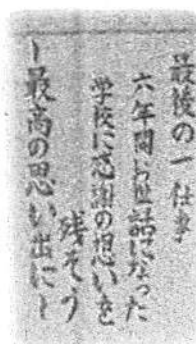 最後の一仕事
六年間お世話になった
学校に感謝の思いを
残そう
～最高の思い出に～